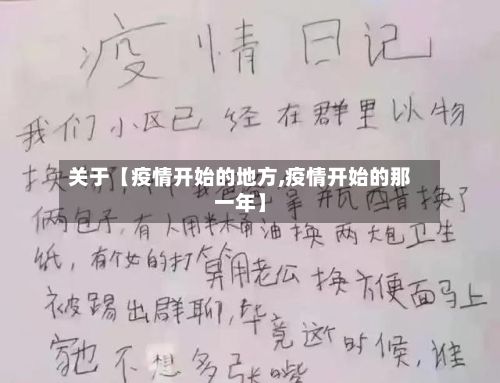 疫情日记
我们小区已经在群里以物
换
关于【疫情开始的地方,疫情开始的那
一年】
拿一瓶醋换了
俩包子,有人用半桶油换两大包卫生
纸,有个女的打算用老公换方便面马上
被踢出群聊,毕竟这个时候,谁
家也不想多张嘴